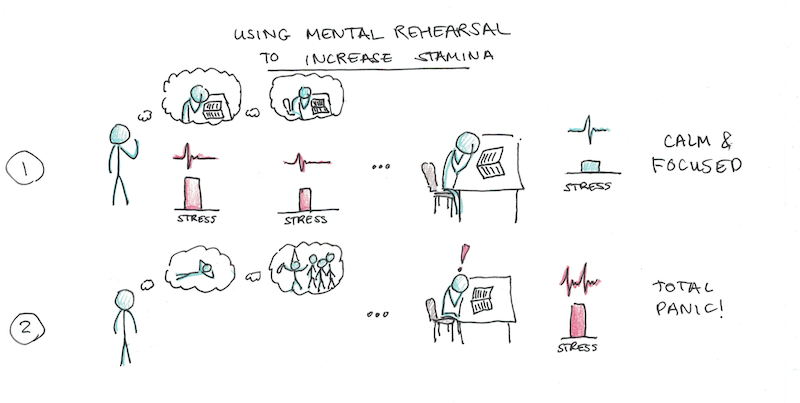 USING MENTAL REHEARSAL
TO INCREASE STAMINA
1
STRESS
STRESS
...
STRESS
CALM &
FOCUSED
2
...
!
STRESS
TOTAL
PANIC!